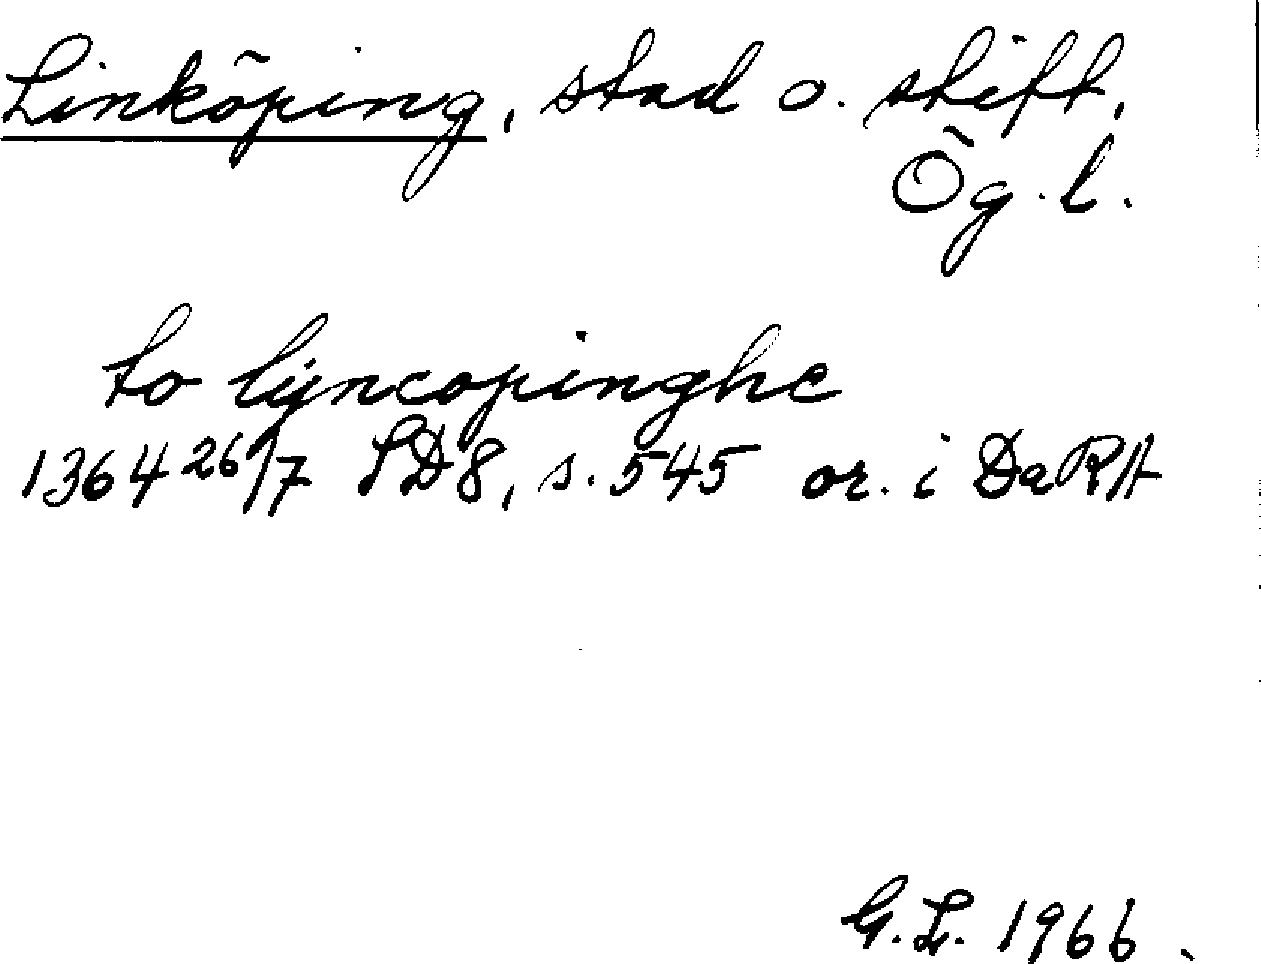 Linköping, stad o. stift,
Ög. l.
to lyncopinghe
1364 26/7 SD 8, s. 545 or. i DaRA
G.L. 1966.